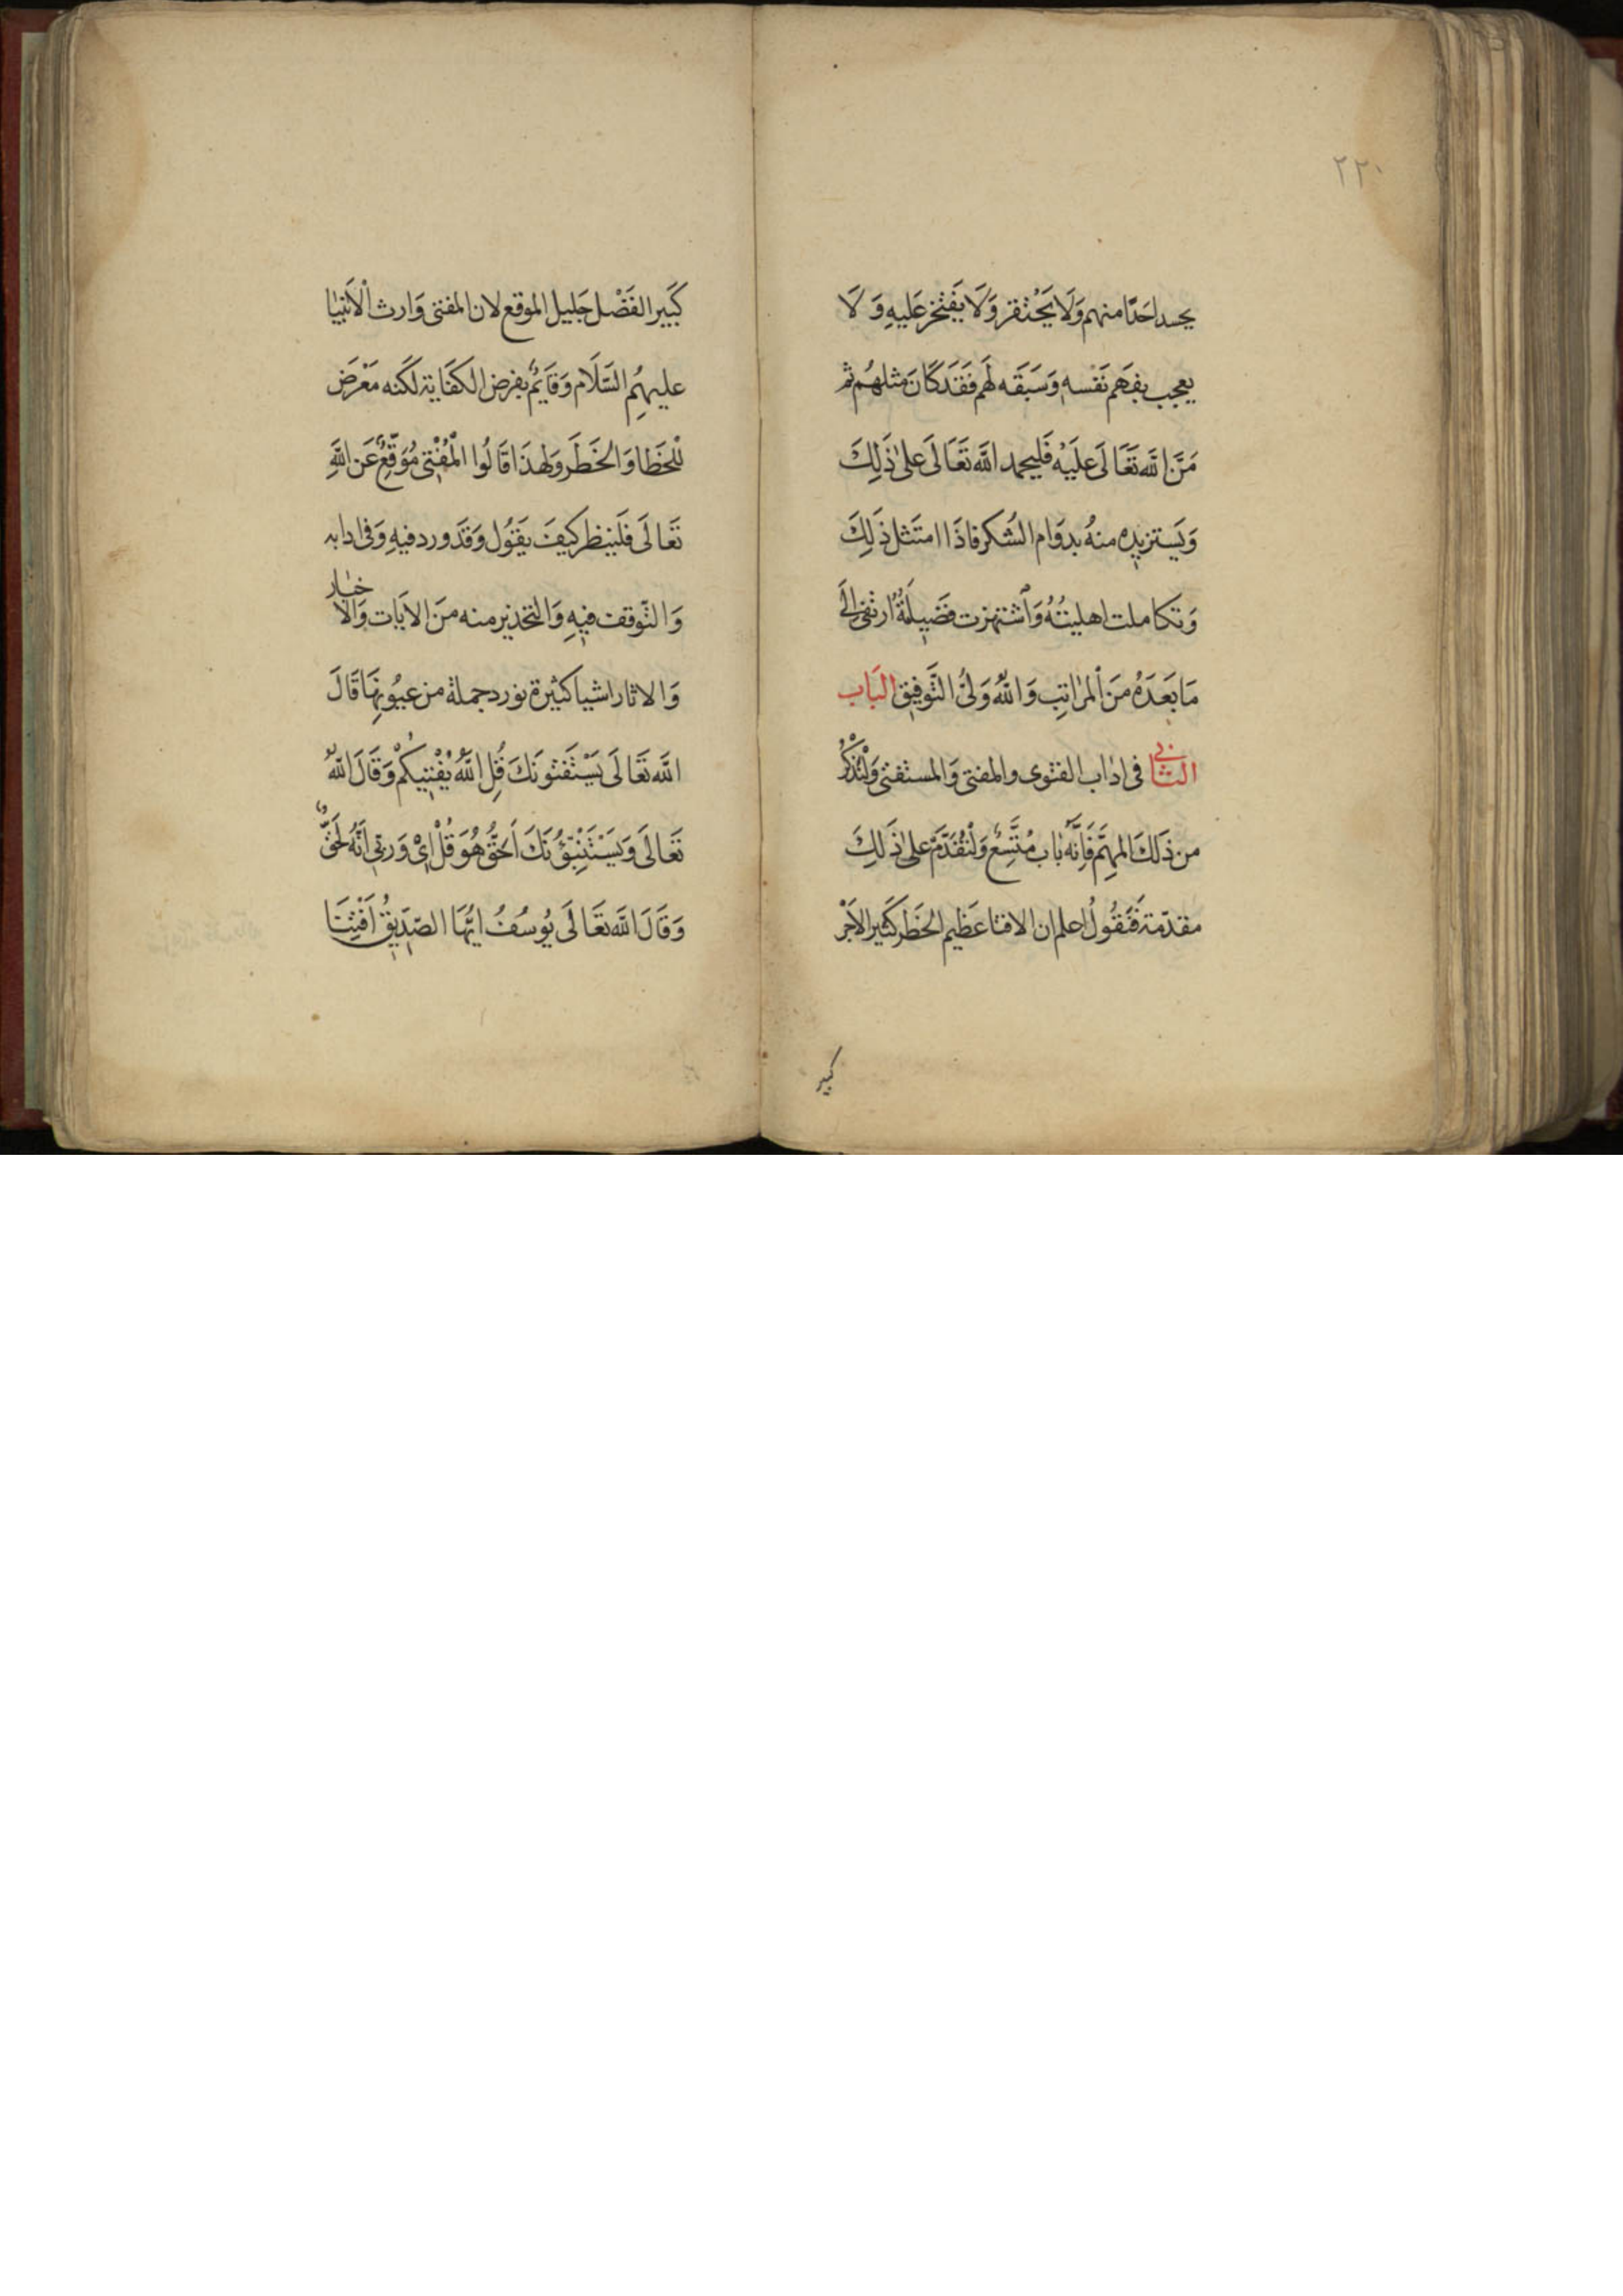 ٢٢٠
يحسد احَدًا منهم وَلَا يَحْتقر وَلَا يَفْتخر عَليهِ وَلَا
يعجب بفهَم نَفْسه وَسَبَقَه لَهم فَقَد كَانَ مثلهُم ثم
مَنَّ الله تَعَالَى عَلَيْه فَليحمد الله تَعَالَى على ذَلِكَ
وَيَستزيده منهُ بدوَام الشُكر فاذَا امتَثل ذَلِكَ
وَتكاملت اهليتُهُ وَاشتهرت فَضيلَةُ ارتقى الَى
مَا بَعَدَهُ منَ المرَاتِب وَاللهُ وَلىُّ التَّوفيق البَاب
الثانى فى ادَاب الفتوى والمفتى وَالمستفتى وَلْنَذْكُرْ
من ذَلكَ المهِمَّ فَاِنَّه بَاب مُتَّسِعٌ وَلْنُقَدِّمَ على ذَلكَ
مقدّمة فَنَقُولُ اعلم ان الافتا عَظيم الخَطَر كَثير الاَجْر
كبير
كَبَير الفَضْل جَليل الموقع لان المفتى وَارث الْاَنبيَا
عليهِمُ السَّلَام وَقَايمٌ بفرض الكفَاية لكَنه مَعْرَض
للخَطا وَالخَطَر وَلهذَا قَالُوا الْمُفْتِى مُوَقِّعٌ عَن اللهِ
تَعَالَى فَلَينظر كَيفَ يَقَوُل وَقَد ورد فيهِ وَفى ادابه
وَالتّوقف فيهِ وَالتحَذير منه منَ الايَات وَالاخبَار
وَالاثار اشيا كثيرة نورد جملة من عيُونِهَا قَالَ
الله تَعَالَى يَسْتَفتونَكَ قُلِ اللهُ يُفْتِيكُمْ وَقَالَ اللهُ
تَعَالَى وَيَسْتَنْبِئُونَكَ اَحَقٌّ هُوَ قُلْ اِىْ وَرَبِّى اِنَّهُ لَحَقٌّ
وَقَالَ الله تَعَالَى يُوسُفُ ايُّهَا الصّدِيقُ اَفْتِنَا